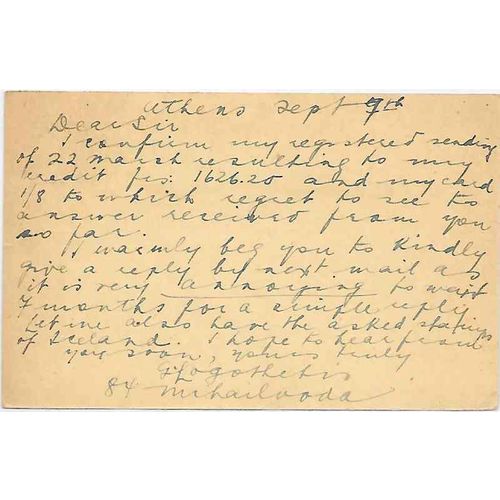 Athens Sept 9th
Dear Sir
I confirm my registered sending
of 22 march resulting to my
credit frs: 1626.20 and my card
1/8 to which regret to see to
answer received from you
so far.
I warmly beg you to kindly
give a reply by next mail as
it is very annoying to wait
7 months for a simple reply
Let me also have the asked stamps
of Iceland. I hope to hear from
you soon, yours truly
84